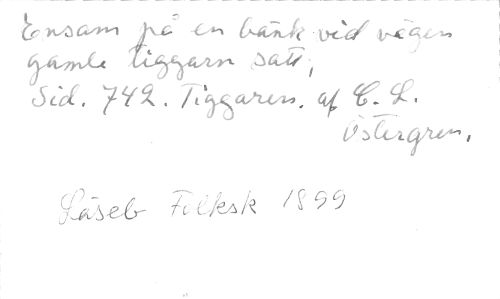 Ensam på en bänk vid vägen
gamle tiggarn satt;
Sid. 742. Tiggaren. af C. L.
Östergren.
Läseb Folksk 1899